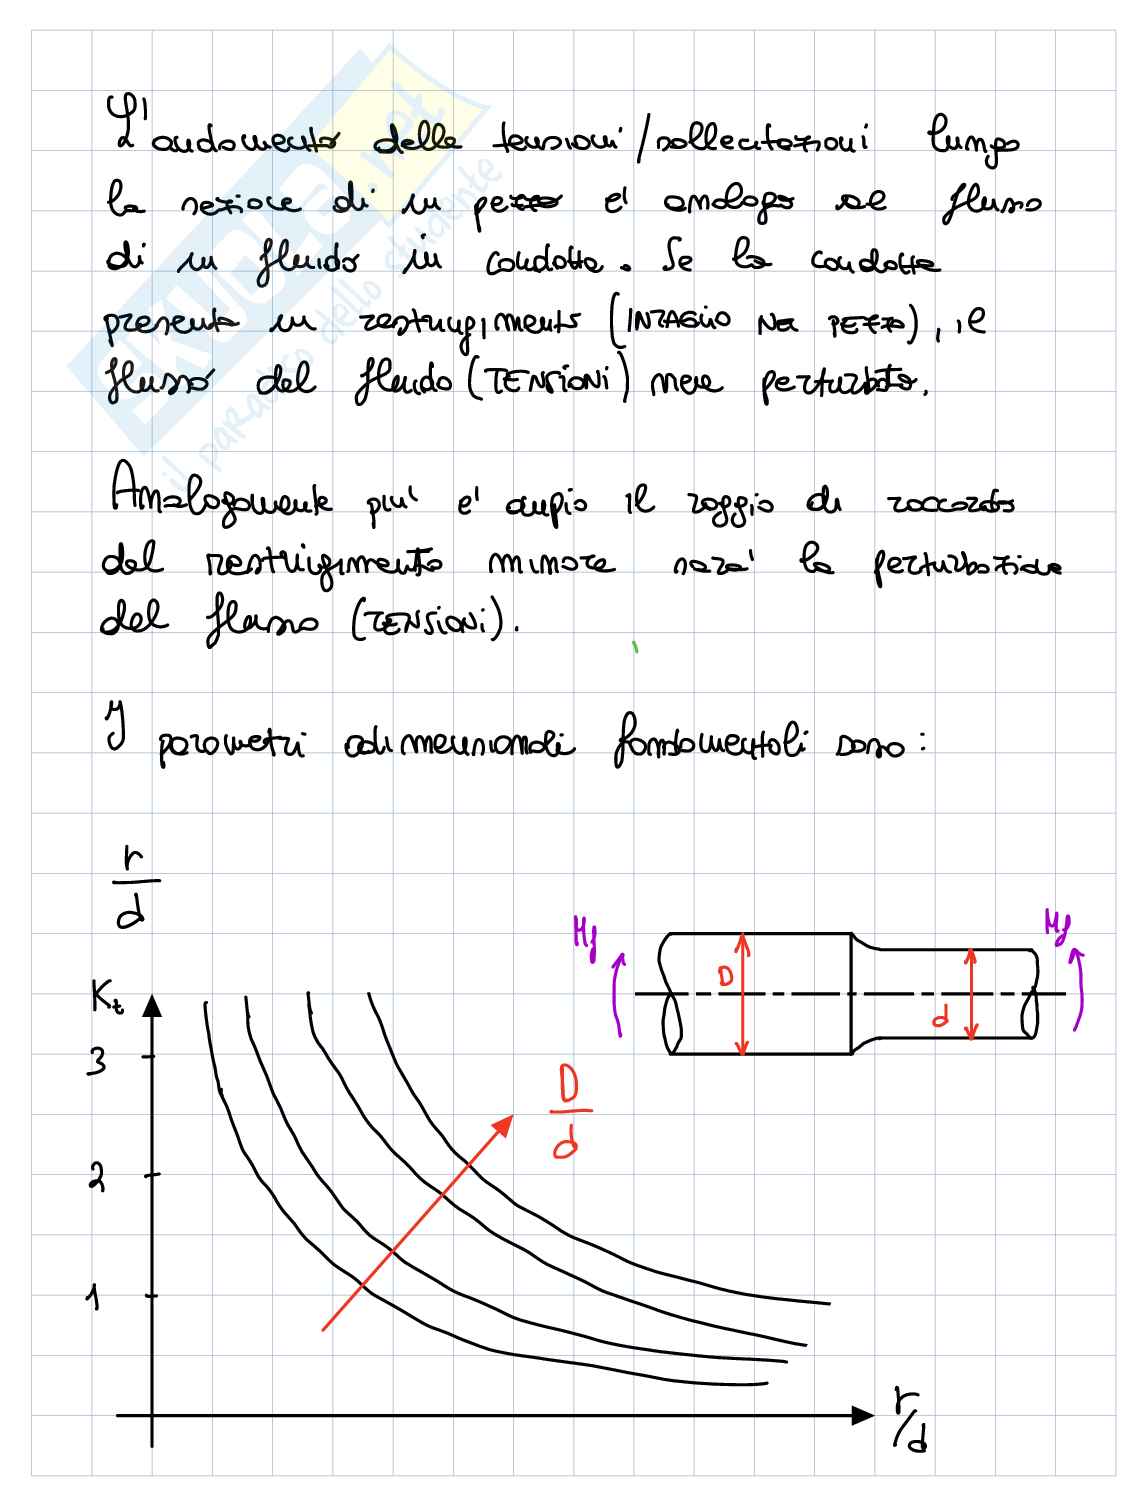 L'andamento delle tensioni/sollecitazioni lungo
la sezione di un pezzo e' analogo al flusso
di un fluido in condotta. Se la condotta
presenta un restringimento (INTAGLIO NEL PEZZO), il
flusso del fluido (TENSIONI) viene perturbato.
Analogamente piu' e' ampio il raggio di raccordo
del restringimento minore sara' la perturbazione
del flusso (TENSIONI).
I parametri adimensionali fondamentali sono:
r
d
Mf
Mf
D
d
Kt
3
2
1
D
d
r/d
SKUOLA.net
il paradiso dello studente